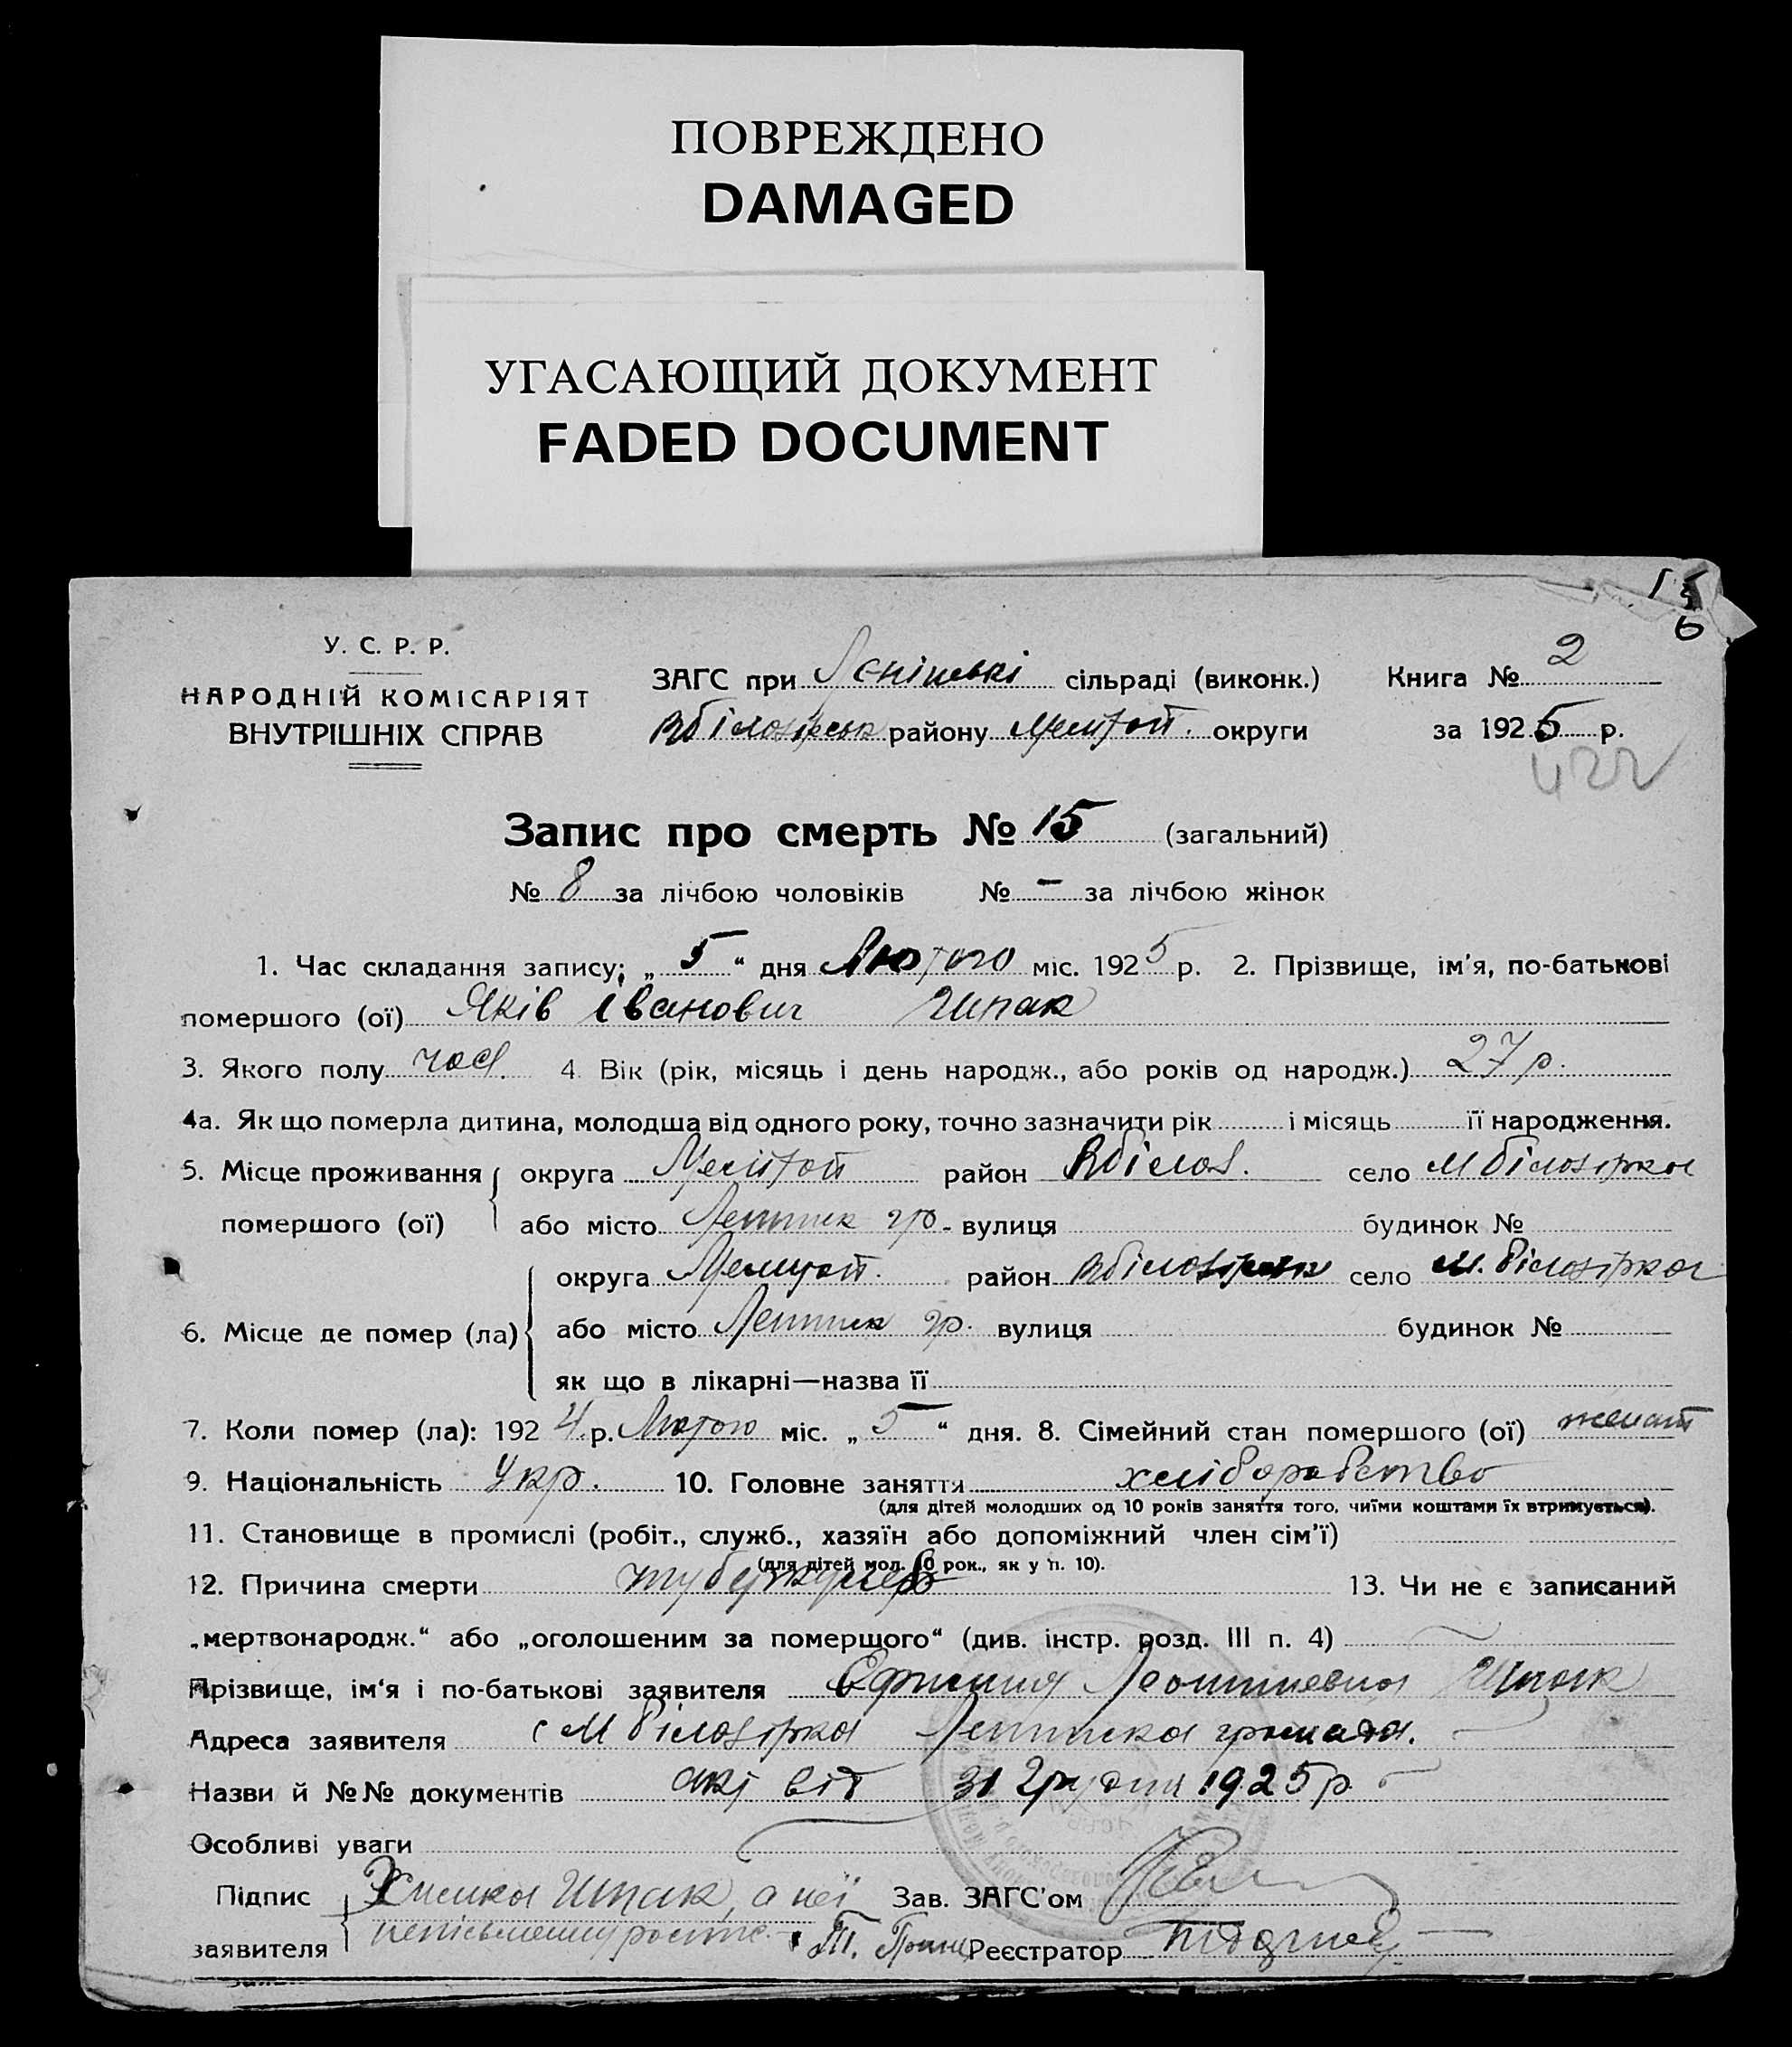 ПОВРЕЖДЕНО
DAMAGED
УГАСАЮЩИЙ ДОКУМЕНТ
FADED DOCUMENT
6
У. С. Р. Р.
НАРОДНІЙ КОМІСАРІЯТ
ВНУТРІШНІХ СПРАВ
ЗАГС при сільраді (виконк.)
Вбілозірськ району Мелітоп. округи
Книга № 2
за 1925 р.
422
Запис про смерть № 15 (загальний)
№ 8 за лічбою чоловіків № - за лічбою жінок
1. Час складання запису; „ 5 “ дня Лютого міс. 1925 р. 2. Прізвище, ім'я, по-батькові
помершого (ої) Яків Іванович Шпак
3. Якого полу чол. 4. Вік (рік, місяць і день народж., або років од народж.) 27 р.
4а. Як що померла дитина, молодша від одного року, точно зазначити рік і місяць її народження.
5. Місце проживання округа Мелітоп район Вбілоз. село М білозірка
помершого (ої) або місто гр. вулиця будинок №
округа Мелітоп. район Вбілозірськ село М. білозірка
6. Місце де помер (ла) або місто гр. вулиця будинок №
як що в лікарні—назва її
7. Коли помер (ла): 1924 р. Лютого міс. „ 5 “ дня. 8. Сімейний стан помершого (ої) женат
9. Національність Укр. 10. Головне заняття хліборобство
(для дітей молодших од 10 років заняття того, чиїми коштами їх втримується).
11. Становище в промислі (робіт., служб., хазяїн або допоміжний член сім'ї)
(для дітей мол. 10 рок., як у п. 10).
12. Причина смерти туберкульоз 13. Чи не є записаний
„мертвонародж.“ або „оголошеним за померщого“ (див. інстр. розд. III п. 4)
Прізвище, ім'я і по-батькові заявителя Шпак
Адреса заявителя с М білозірка громада.
Назви й №№ документів акт від 31 Грудня 1925 р.
Особливі уваги
Підпис Шпак, а неї Зав. ЗАГС'ом
заявителя Реєстратор